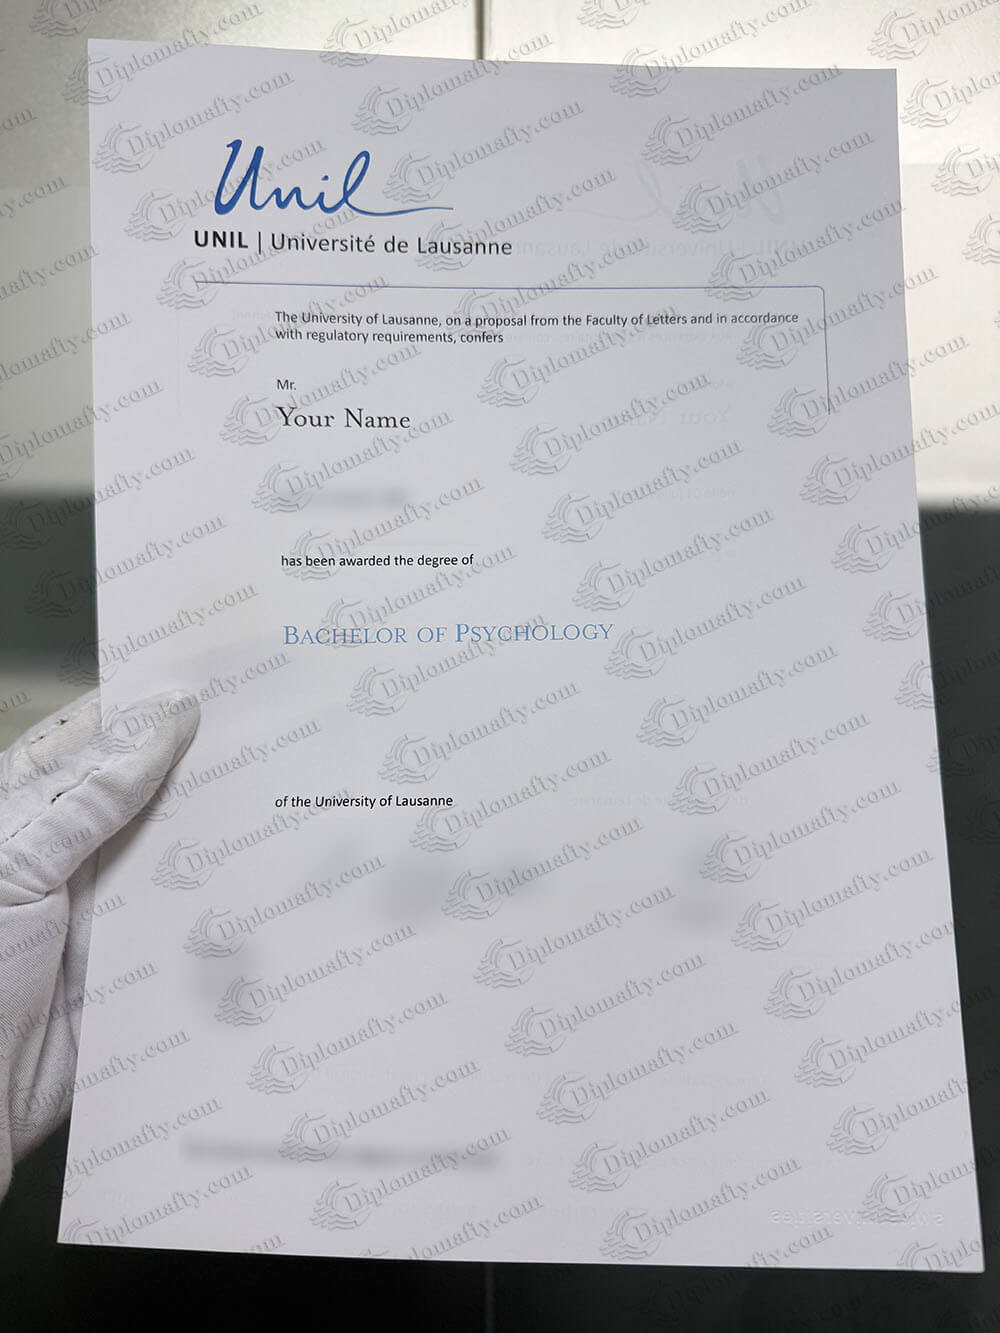 Unil
UNIL | Université de Lausanne
The University of Lausanne, on a proposal from the Faculty of Letters and in accordance
with regulatory requirements, confers
Mr.
Your Name
has been awarded the degree of
BACHELOR OF PSYCHOLOGY
of the University of Lausanne
Diplomafty.com